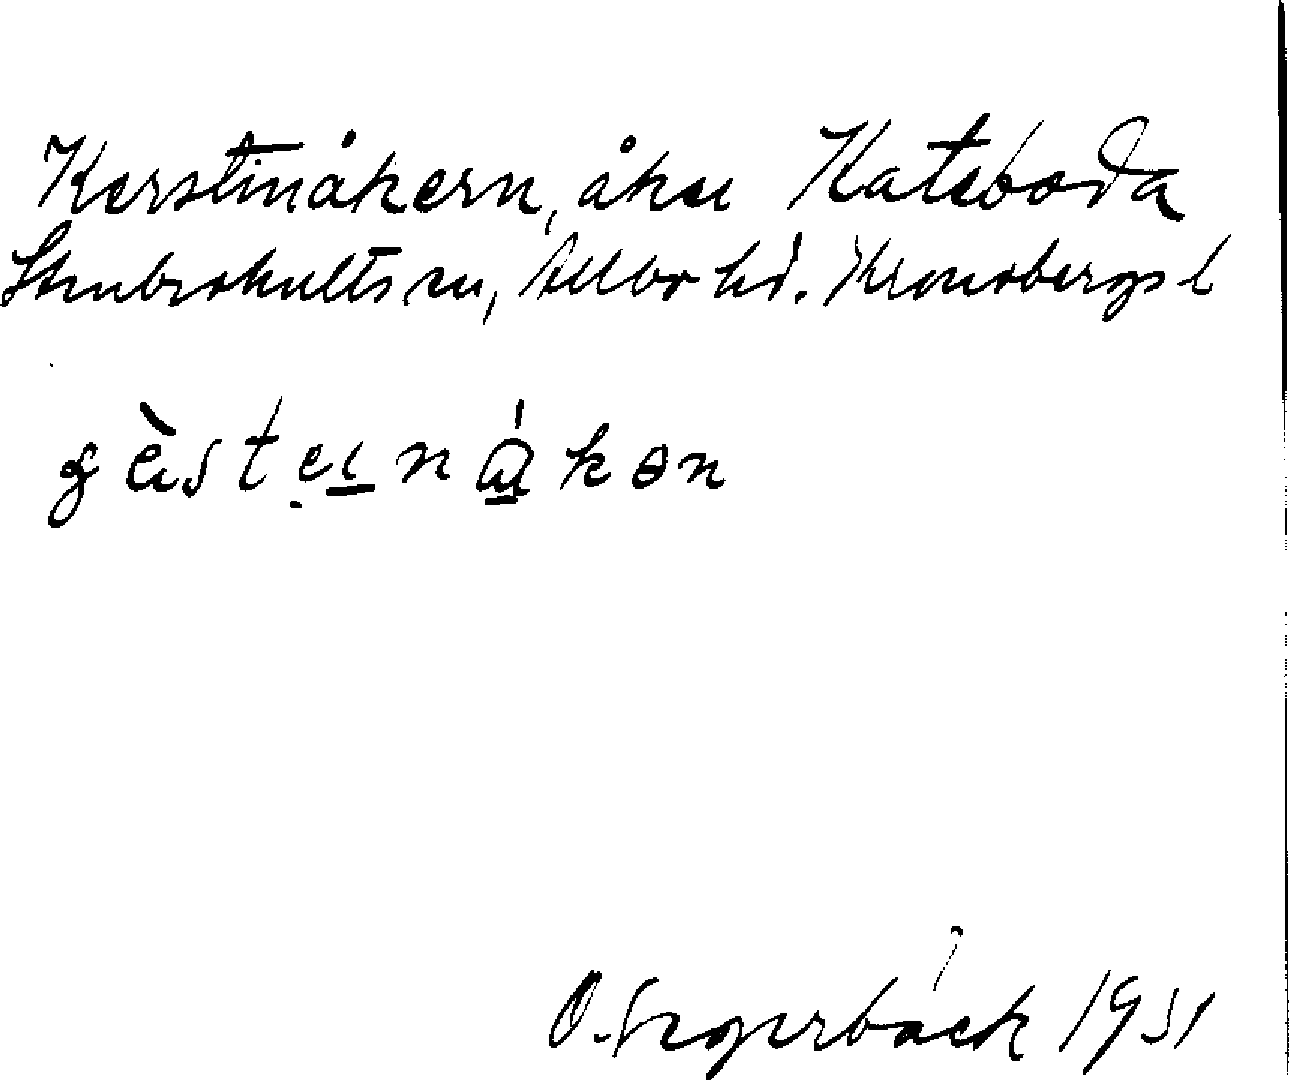 Kerstinåkern, åker Kateboda
Stenbrohults sn, Allbo hd. Kronobergs l
O. Segerbäck 1931